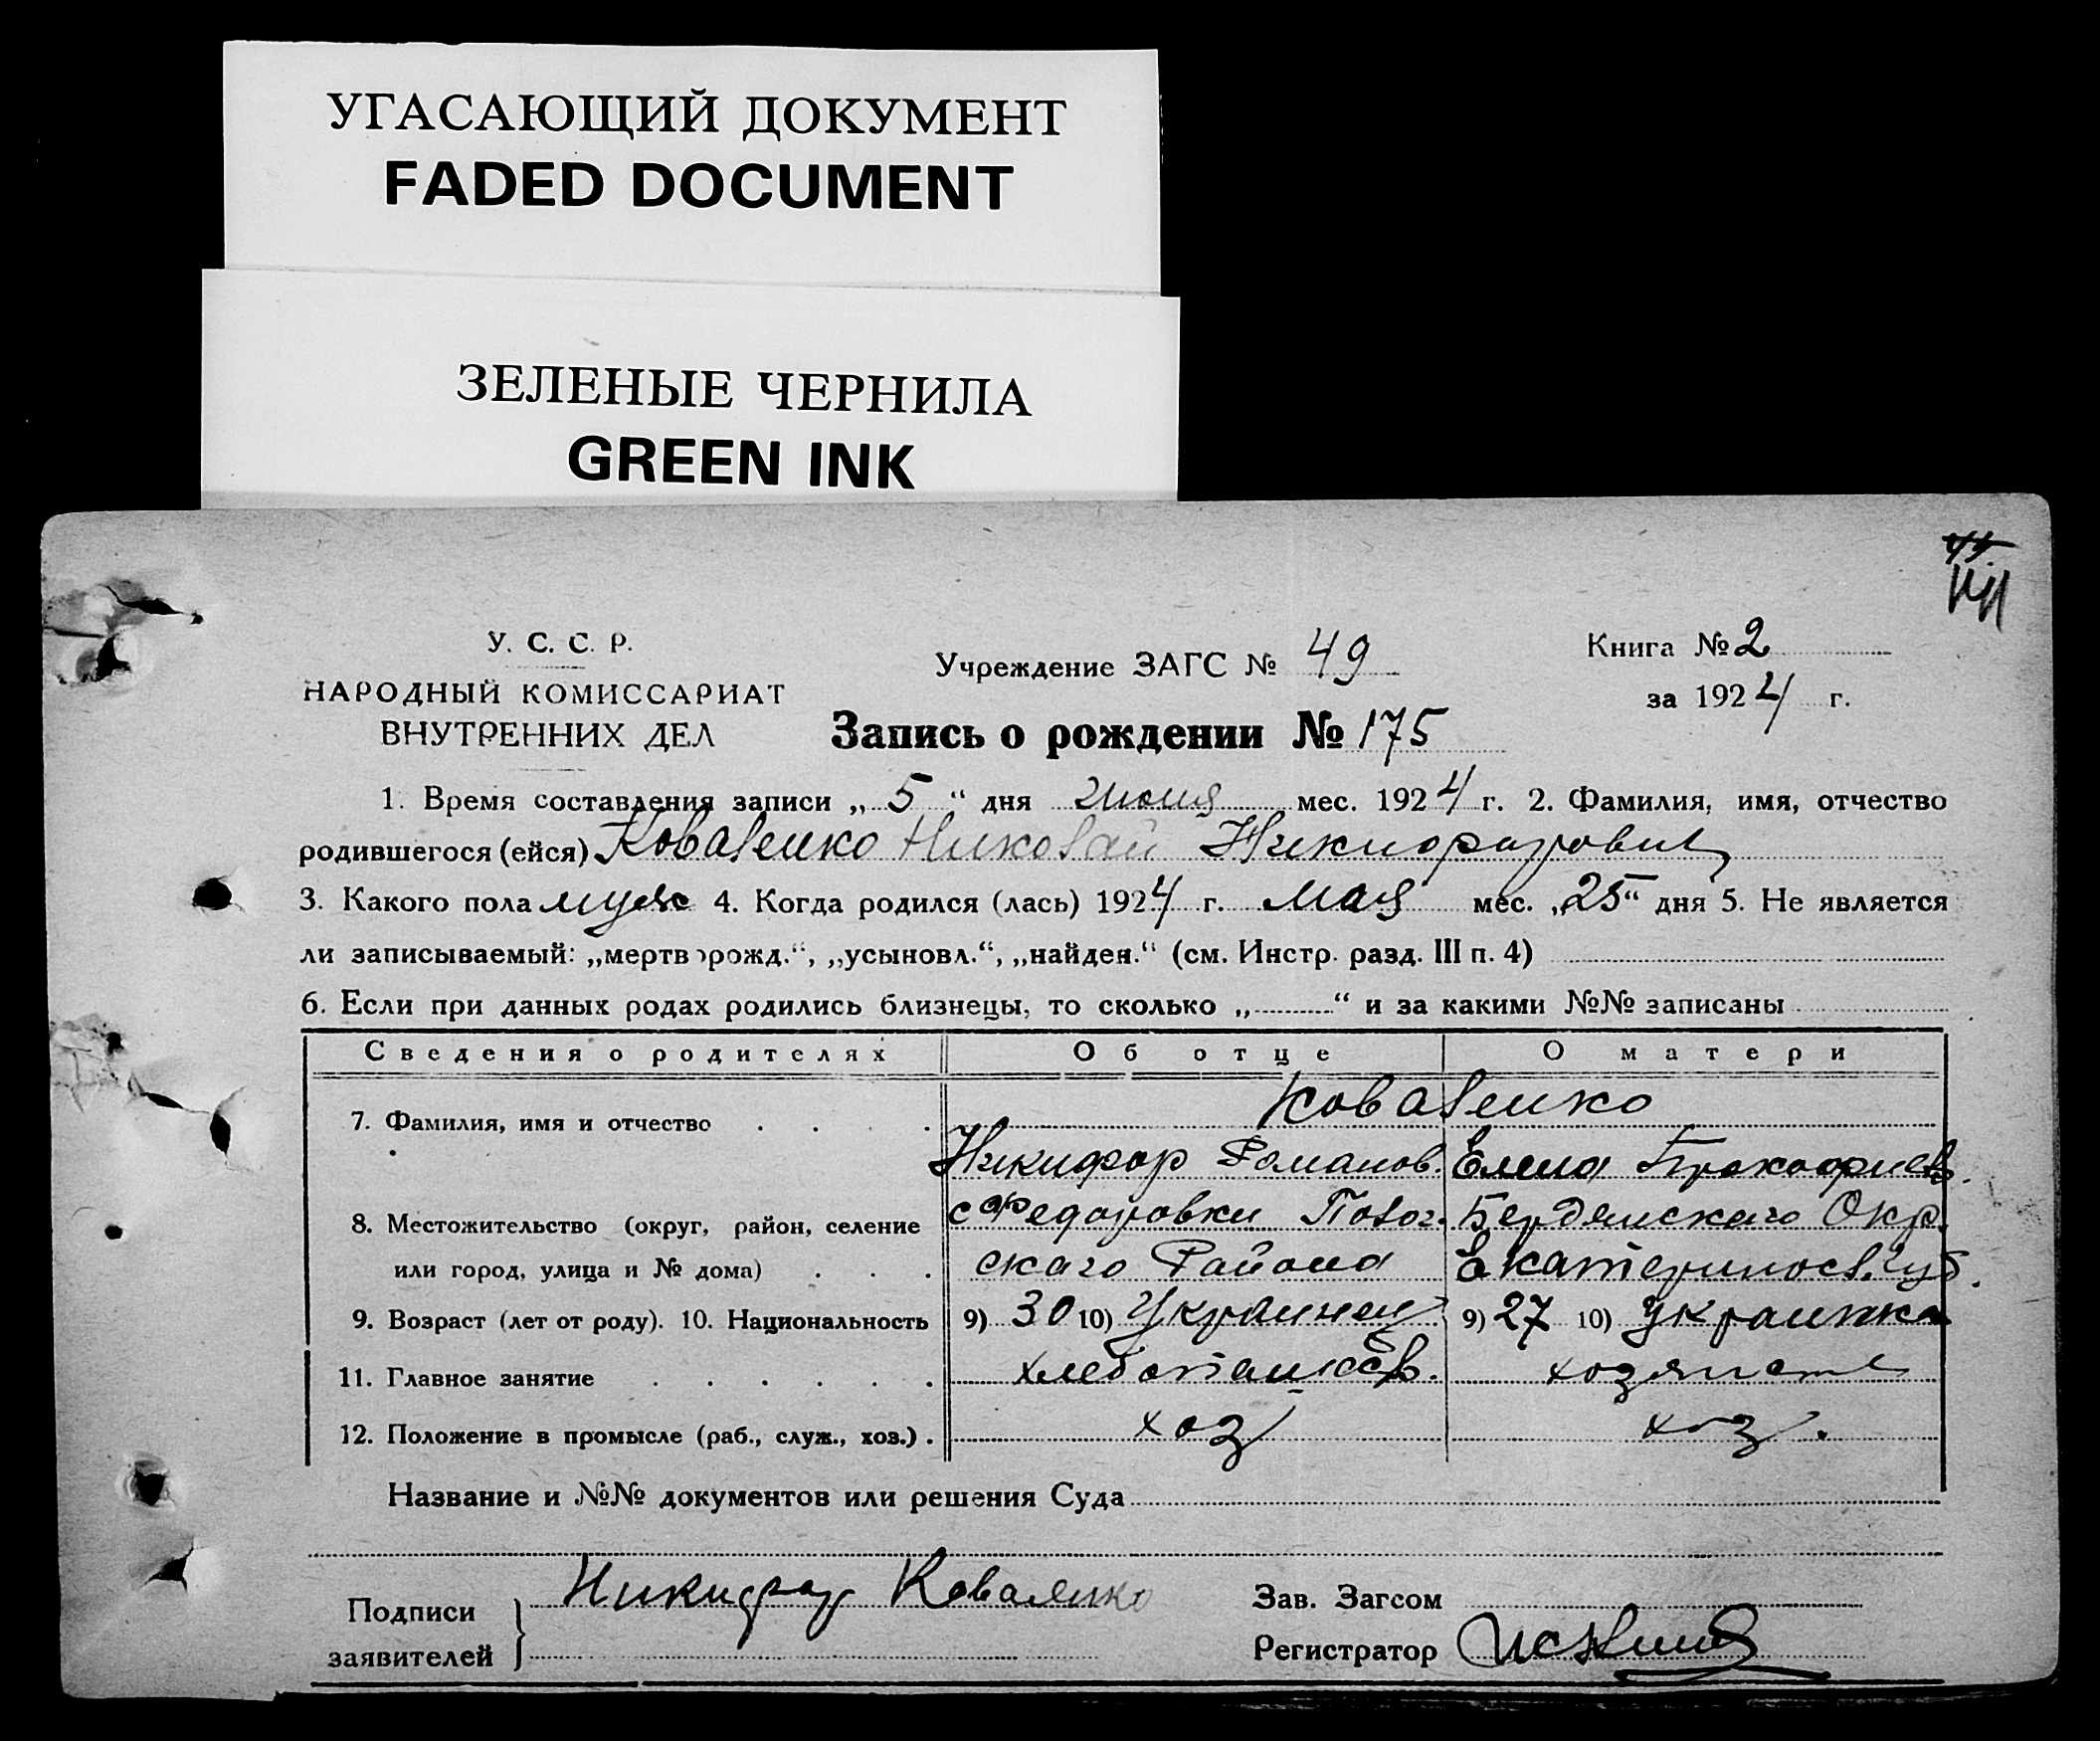 УГАСАЮЩИЙ ДОКУМЕНТ
FADED DOCUMENT
ЗЕЛЕНЫЕ ЧЕРНИЛА
GREEN INK
У. С. С. Р.
НАРОДНЫЙ КОМИССАРИАТ
ВНУТРЕННИХ ДЕЛ
Учреждение ЗАГС № 49
Книга № 2
за 1924 г.
Запись о рождении № 175
1. Время составления записи „ 5 “ дня Июня мес. 1924 г. 2. Фамилия, имя, отчество
родившегося (ейся) Коваленко Николай Никифорович
3. Какого пола муж 4. Когда родился (лась) 1924 г. Мая мес. „25“ дня 5. Не является
ли записываемый: „мертворожд.“, „усыновл.“, „найден.“ (см. Инстр. разд. III п. 4)
6. Если при данных родах родились близнецы, то сколько „ “ и за какими №№ записаны
Сведения о родителях Об отце О матери
7. Фамилия, имя и отчество Коваленко
Никифор Романов. Елена Прокофиев.
8. Местожительство (округ, район, селение с Федоровки Полог. Бердянскаго Окр.
или город, улица и № дома) скаго Района Екатеринос. губ.
9. Возраст (лет от роду). 10. Национальность 9) 30 10) Украинец 9) 27 10) Украинка
11. Главное занятие
12. Положение в промысле (раб., служ., хоз.) . хоз хоз.
Название и №№ документов или решения Суда
Подписи
заявителей
Никифор Коваленко
Зав. Загсом
Регистратор